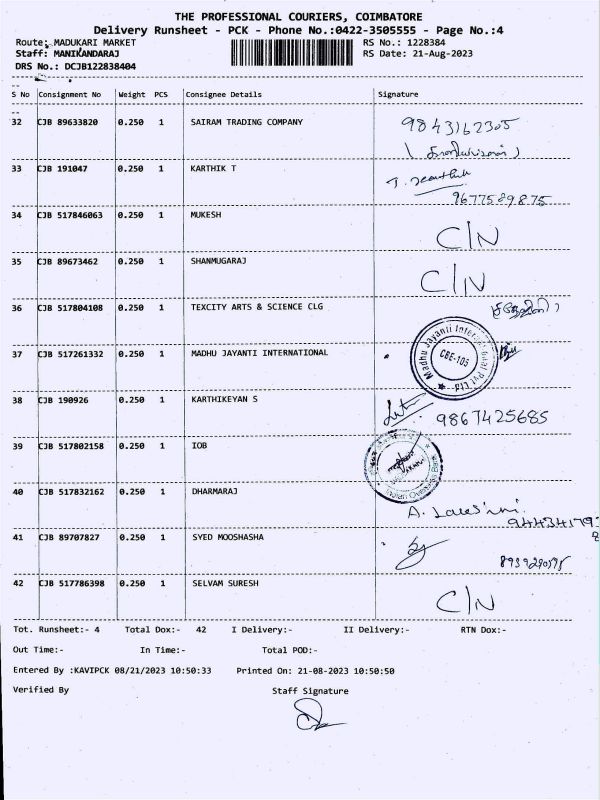 THE PROFESSIONAL COURIERS, COIMBATORE
Delivery Runsheet - PCK - Phone No.:0422-3505555 - Page No.:4
Route: MADUKARI MARKET RS No.: 1228384
Staff: MANIKANDARAJ RS Date: 21-Aug-2023
DRS No.: DCJB122838404
S No Consignment No Weight PCS Consignee Details Signature
32 CJB 89633820 0.250 1 SAIRAM TRADING COMPANY 9843162305
33 CJB 191047 0.250 1 KARTHIK T
9677589875
34 CJB 517846063 0.250 1 MUKESH C/N
35 CJB 89673462 0.250 1 SHANMUGARAJ C/N
36 CJB 517804108 0.250 1 TEXCITY ARTS & SCIENCE CLG
37 CJB 517261332 0.250 1 MADHU JAYANTI INTERNATIONAL Madhu Jayanti International Pvt Ltd CBE-105
38 CJB 190926 0.250 1 KARTHIKEYAN S 9867425685
39 CJB 517802158 0.250 1 IOB Indian Overseas Bank
40 CJB 517832162 0.250 1 DHARMARAJ A.
41 CJB 89707827 0.250 1 SYED MOOSHASHA
42 CJB 517786398 0.250 1 SELVAM SURESH C/N
Tot. Runsheet:- 4 Total Dox:- 42 I Delivery:- II Delivery:- RTN Dox:-
Out Time:- In Time:- Total POD:-
Entered By :KAVIPCK 08/21/2023 10:50:33 Printed On: 21-08-2023 10:50:50
Verified By Staff Signature